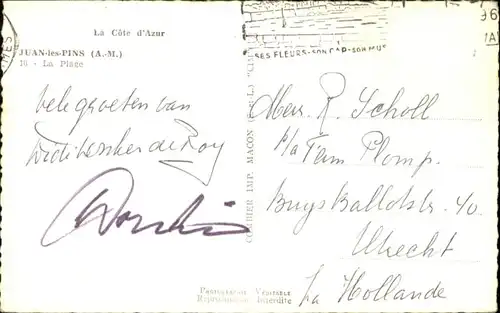 La Côte d'Azur
JUAN-les-PINS (A.-M.)
16 - La Plage
SES FLEURS-SON CAP-SON MUS
vele groeten van
de Roy
Mevr. R. Scholl
p/a Fam Plomp.
Buys Ballotstr. 40
Utrecht
La Hollande
COMBIER IMP. MACON
Reproduction Interdite